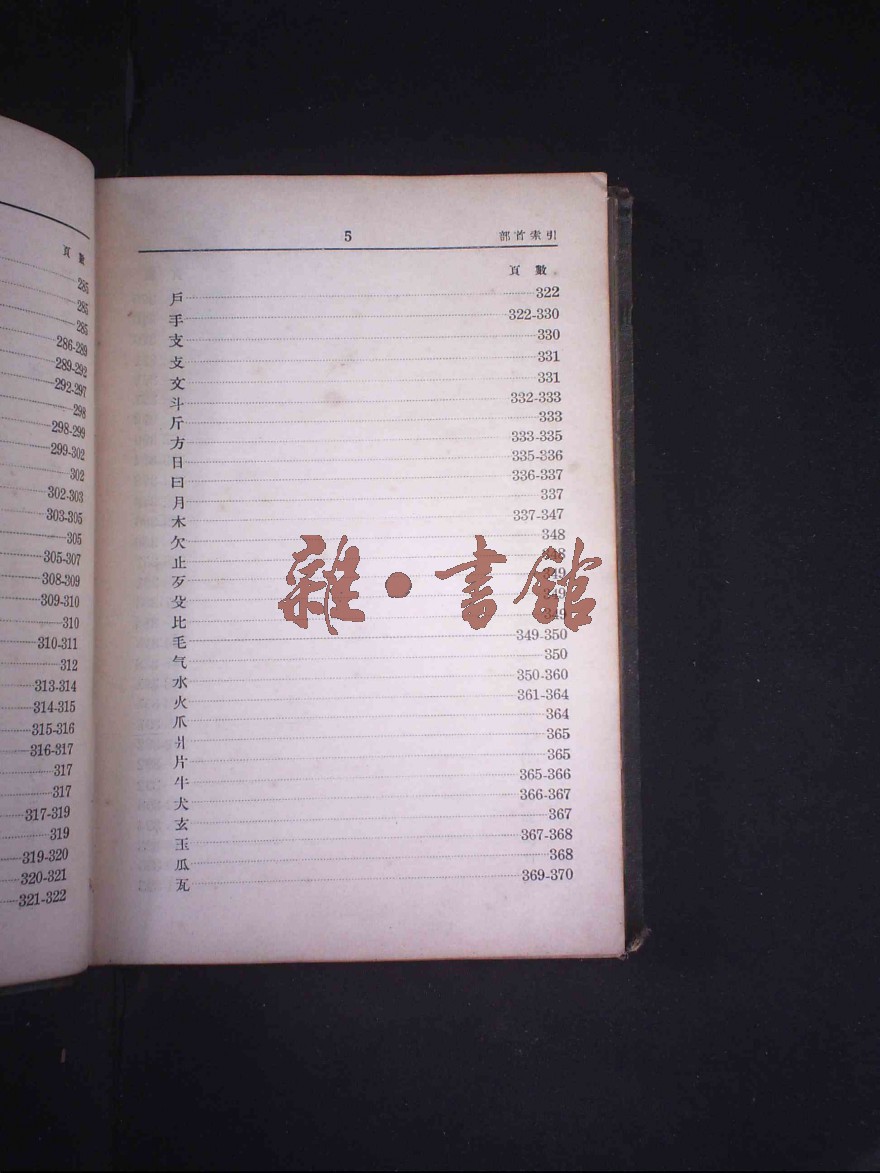 頁 數
285
285
285
286-289
289-292
292-297
298
298-299
299-302
302
302-303
303-305
305
305-307
308-309
309-310
310
310-311
312
313-314
314-315
315-316
316-317
317
317
317-319
319
319-320
320-321
321-322
5 部首索引
頁 數
戶 322
手 322-330
支 330
攴 331
文 331
斗 332-333
斤 333
方 333-335
日 335-336
曰 336-337
月 337
木 337-347
欠 348
止 348
歹 349
殳 349
比 349
毛 349-350
气 350
水 350-360
火 361-364
爪 364
爿 365
片 365
牛 365-366
犬 366-367
玄 367
玉 367-368
瓜 368
瓦 369-370
雜·書館